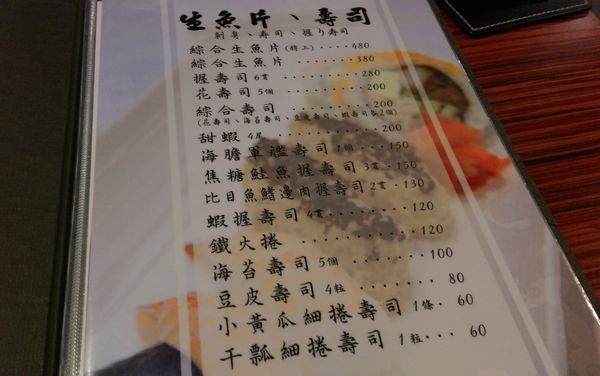 生魚片、壽司
刺身、壽司、握り寿司
綜合生魚片(特上)....480
綜合生魚片.......380
握壽司 6貫.......280
花壽司 5個.......200
綜合壽司.........200
(花壽司、海苔壽司、豆皮壽司、蝦壽司各2個)
甜蝦 4尾.........200
海膽軍艦壽司 1個...150
焦糖鮭魚握壽司 3貫.150
比目魚鰭邊肉握壽司 2貫.130
蝦握壽司 4貫......120
鐵火捲..........120
海苔壽司 5個......100
豆皮壽司 4粒......80
小黃瓜細捲壽司 1條.60
干瓢細捲壽司 1粒...60